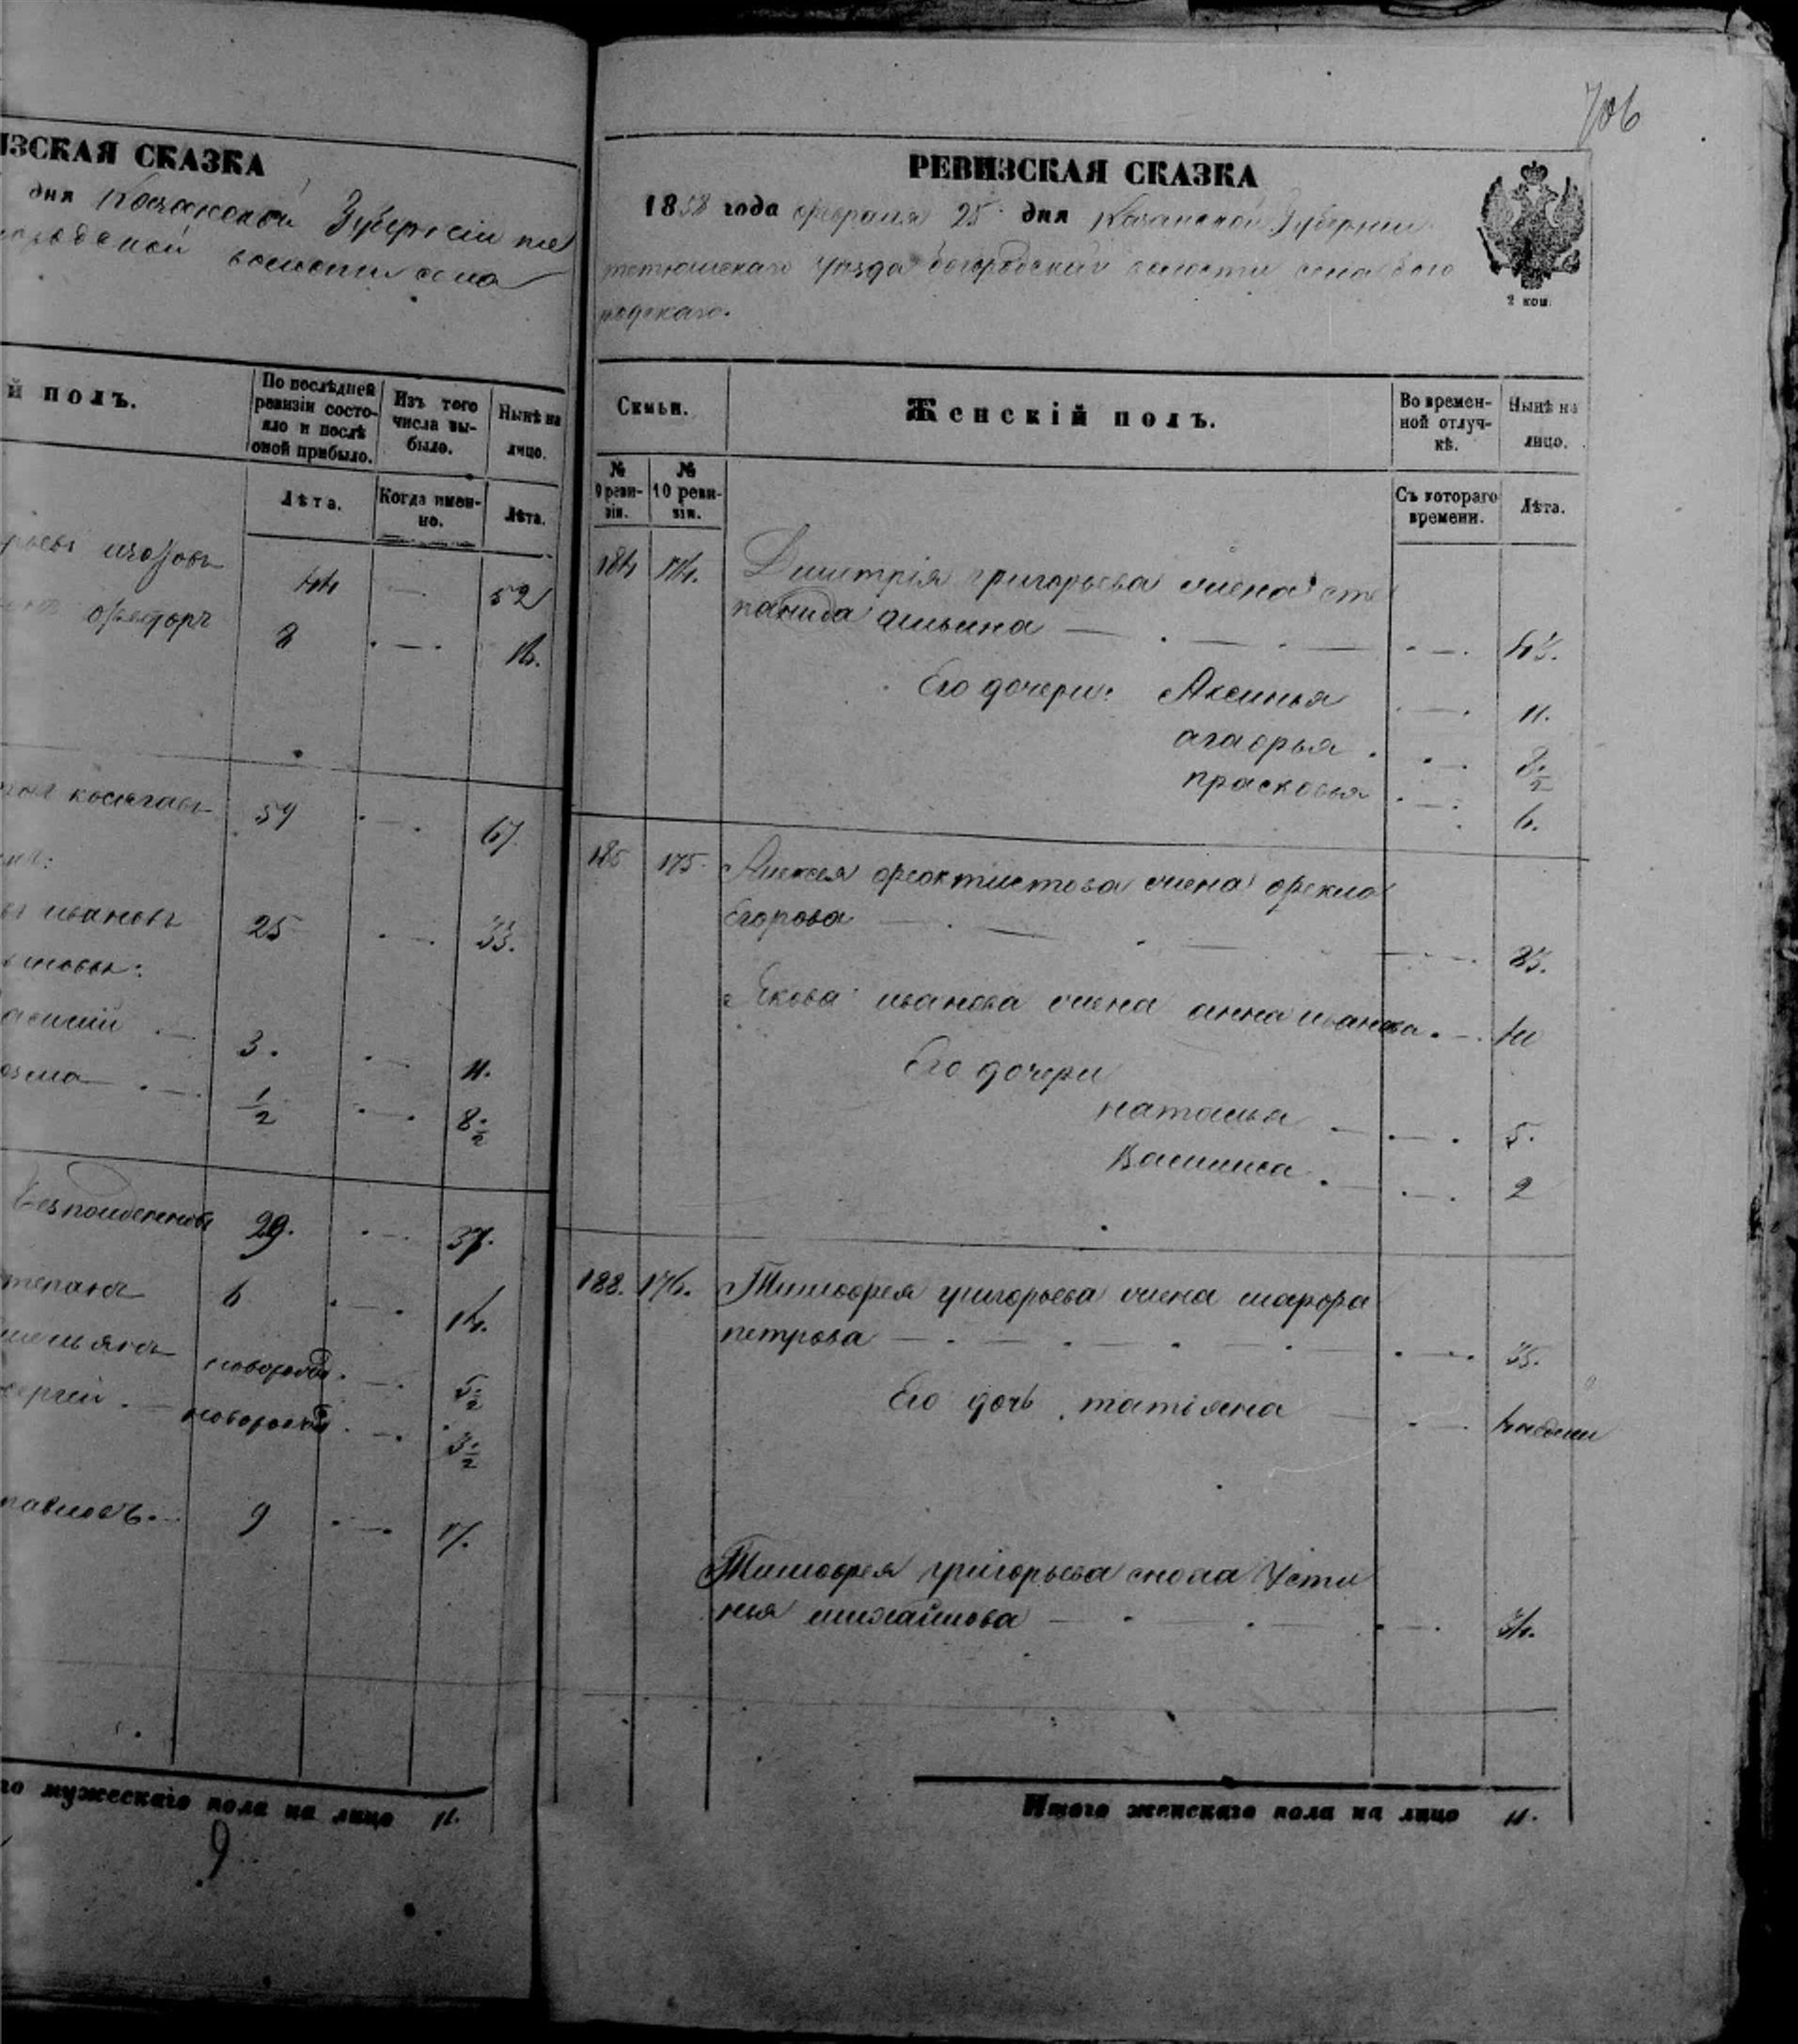 ИЗСКАЯ СКАЗКА
дня Казанской Губерніи те
волости села
й полъ.
По послѣдней ревизіи состояло и послѣ оной прибыло.
Изъ того числа выбыло.
Нынѣ на лицо.
Лѣта.
Когда именно.
Лѣта.
44 — 52
ѳедоръ 8 . — . 16.
59 . — . 67
ивановъ 25 . — . 33.
сыновья:
3. . — 11.
1/2 . — . 8 1/2
29. . — 37.
степанъ 6 . — . 14.
новорожд. — . 5 1/2
сергей . — новорожд . — . 3 1/2
павловъ. — 9 . — . 17.
го мужескаго пола на лицо 11.
9
706
РЕВИЗСКАЯ СКАЗКА
1858 года февраля 25 дня Казанской Губерніи
тетюшскаго уѣзда богородской волости села бого
родскаго.
2 коп.
Семьи.
Женскій полъ.
Во временной отлучкѣ.
Нынѣ на лицо.
№ 9 ревизіи.
№ 10 ревизіи.
Съ котораго времени.
Лѣта.
184 174. Димитрія григорьева жена сте
панида ильина — . — . — . — . 43.
Его дочери: Аксинья . — . 11.
агафья . . — . 8 1/2
прасковья . — . 6.
185 175. Алексея феоктистова жена фекла
Егорова — . — . — . — . 23.
Якова иванова жена анна иванова . — . 40
Его дочери
наталья — . — . 5.
Василиса . — . — . 2
188. 176. Тимофея григорьева жена марфа
петрова — . — . — . — . — . 35.
Его дочь татіяна — . — .
Тимофея григорьева сноха Усти
нья михайлова — . — . — . — . 34.
Итого женскаго пола на лицо 11.